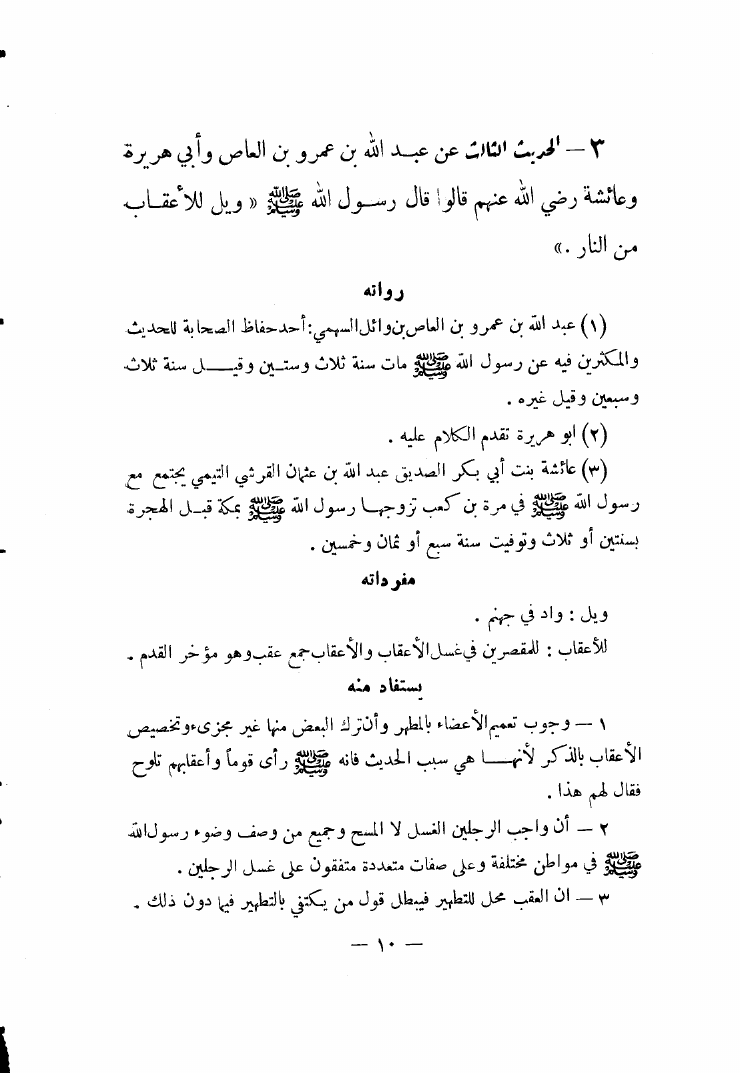 ٣ – الحديث الثالث عن عبـد الله بن عمرو بن العاص وأبي هريرة
وعائشة رضي الله عنهم قالوا قال رسـول الله ﷺ « ويل للأعقـاب
من النار . »
رواته
(١) عبد الله بن عمرو بن العاص بن وائل السهمي: أحد حفاظ الصحابة للحديث
والمكثرين فيه عن رسول الله ﷺ مات سنة ثلاث وستـين وقيــل سنة ثلاث
وسبعين وقيل غيره .
(٢) ابو هريرة تقدم الكلام عليه .
(٣) عائشة بنت أبي بكر الصديق عبد الله بن عثمان القرشي التيمي يجتمع مع
رسول الله ﷺ في مرة بن كعب تزوجهـا رسول الله ﷺ بمكة قبـل الهجرة
بسنتين أو ثلاث وتوفيت سنة سبع أو ثمان وخمسين .
مفرداته
ويل : واد في جهنم .
للأعقاب : للمقصرين في غسل الأعقاب والأعقاب جمع عقب وهو مؤخر القدم .
يستفاد منه
١ – وجوب تعميم الأعضاء بالمطهر وأن ترك البعض منها غير مجزىء وتخصيص
الأعقاب بالذكر لأنهــا هي سبب الحديث فانه ﷺ رأى قوماً وأعقابهم تلوح
فقال لهم هذا .
٢ – أن واجب الرجلين الغسل لا المسح وجميع من وصف وضوء رسول الله
ﷺ في مواطن مختلفة وعلى صفات متعددة متفقون على غسل الرجلين .
٣ – ان العقب محل للتطهير فيبطل قول من يكتفي بالتطهير فيما دون ذلك .
– ١٠ –